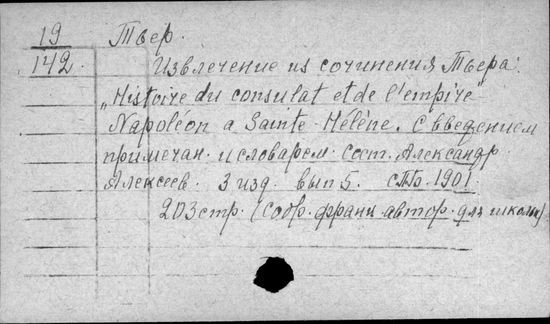 19 Тьер.
142. Извлечение из сочинения Тьера:
„Histoire du consulat et de l'empire"
Napoléon a Sainte-Hélène. С введением
примечан. и словарем сост. Александр
Алексеев. 3 изд. вып 5. СПб. 1901
203 стр. (Собр. франц. автор. для школы)